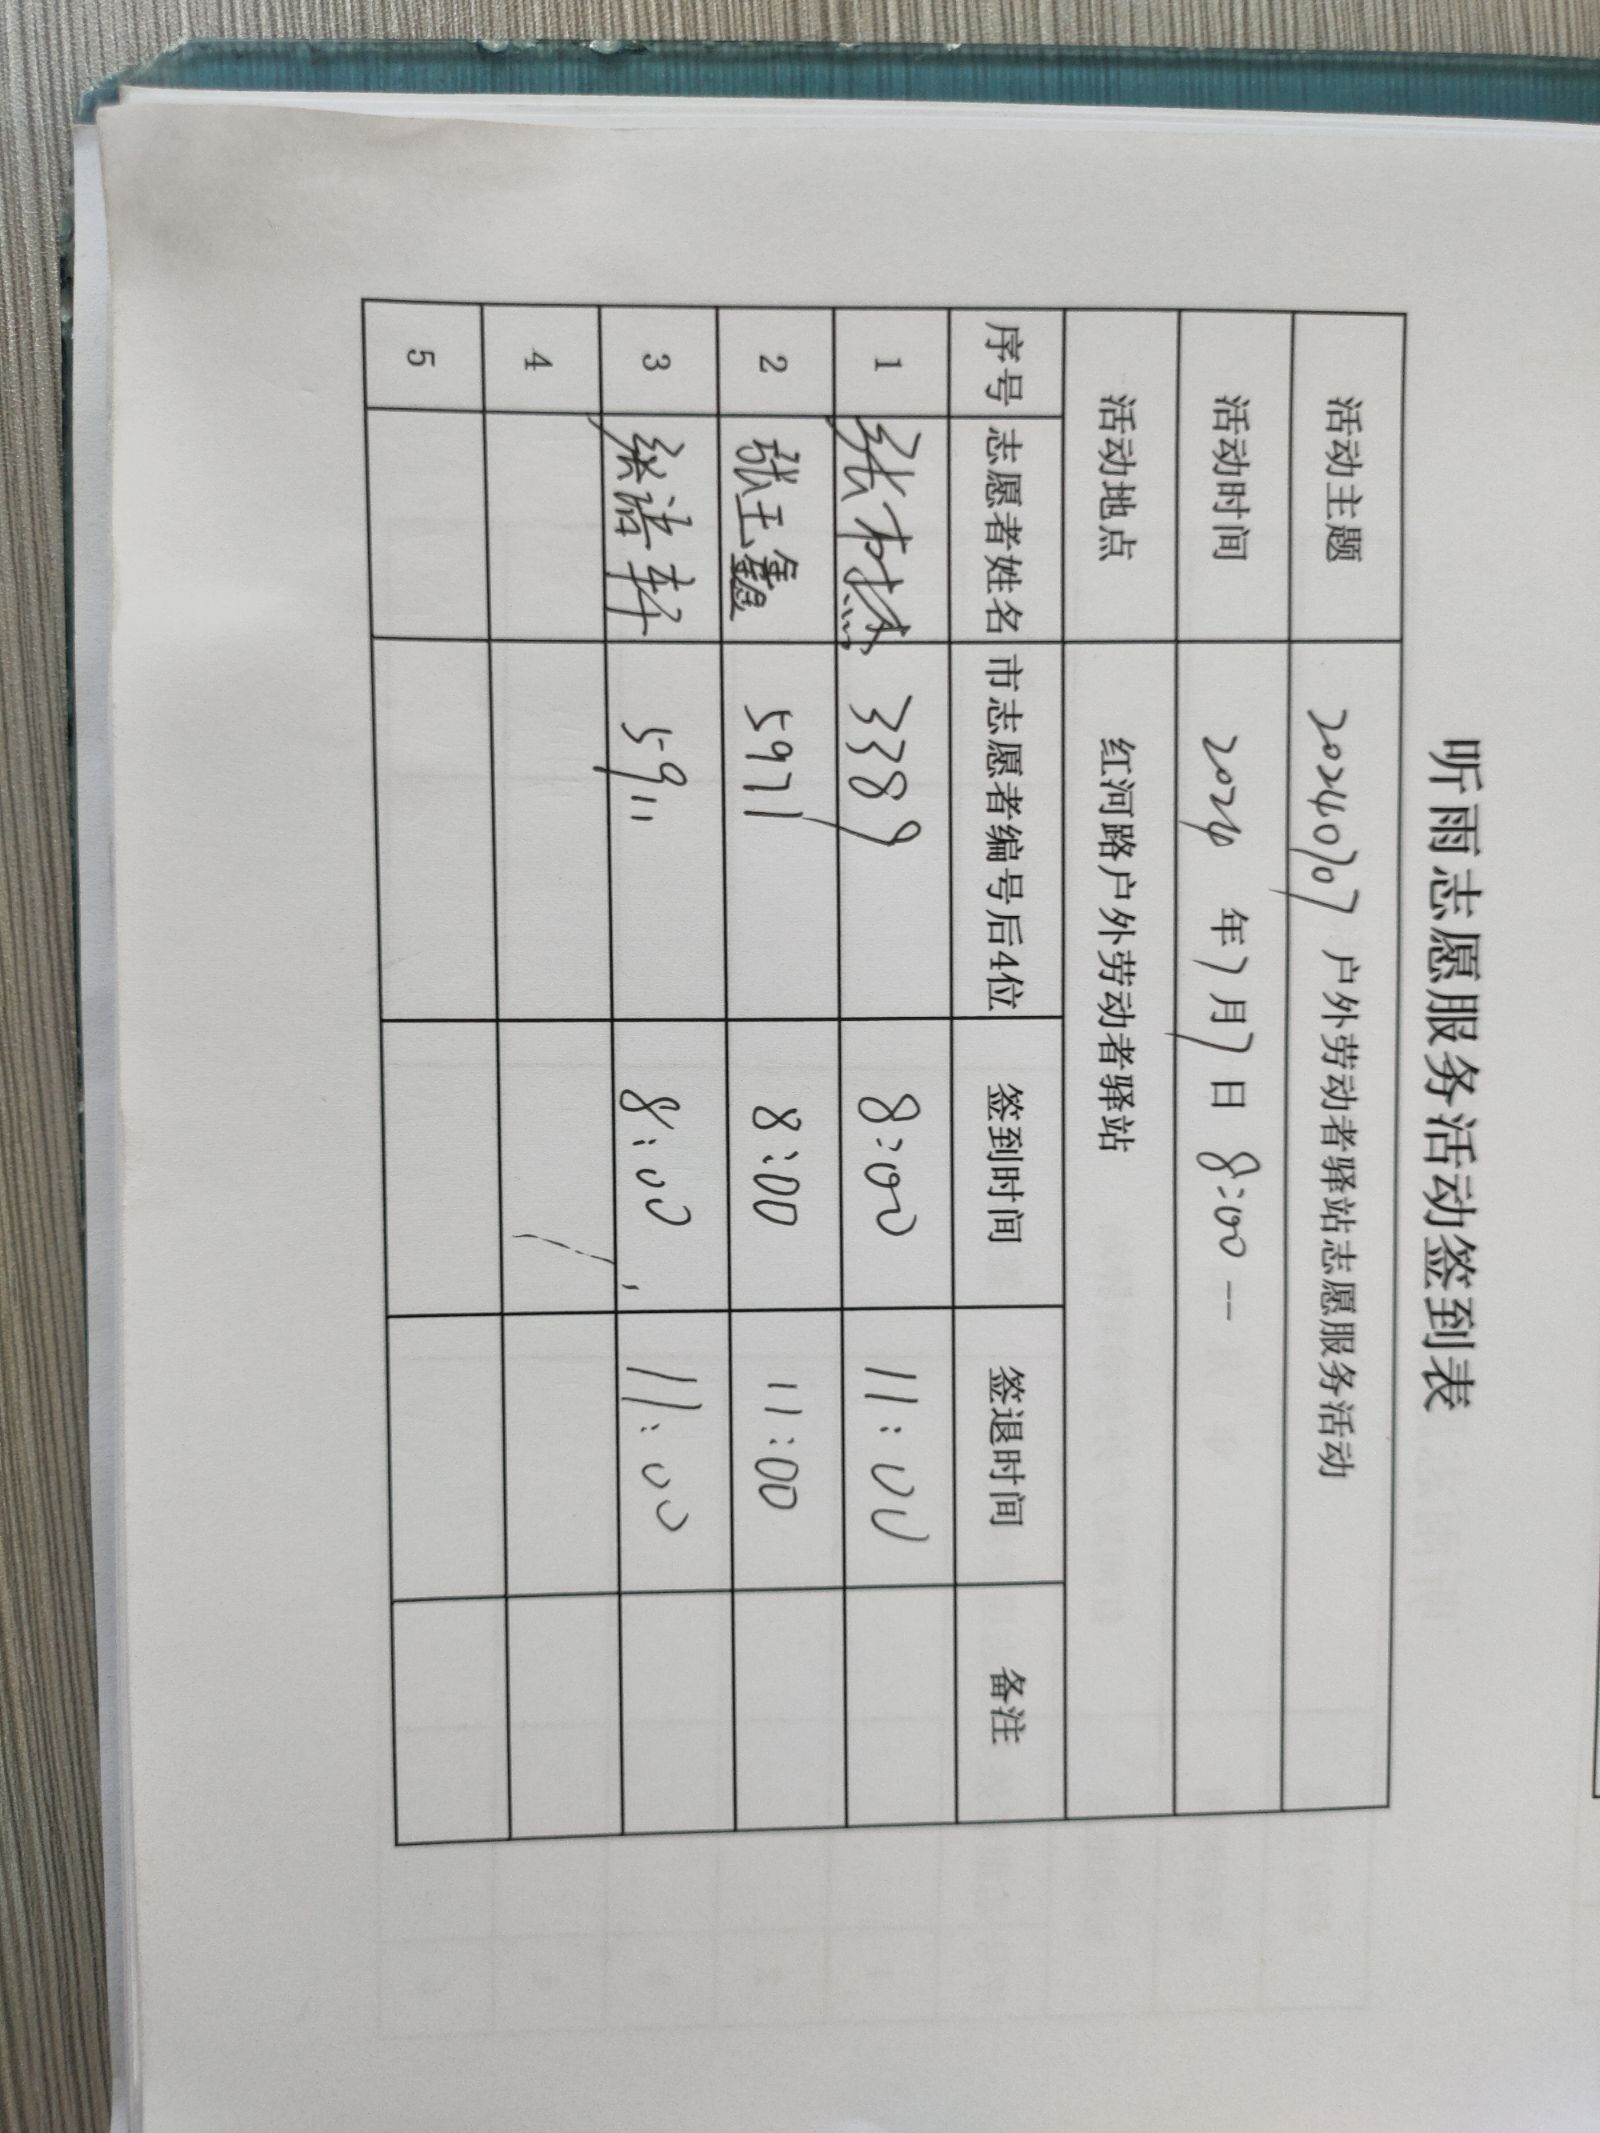 听雨志愿服务活动签到表
活动主题 20240707 户外劳动者驿站志愿服务活动
活动时间 2024 年 7 月 7 日 8:00 --
活动地点 红河路户外劳动者驿站
序号 志愿者姓名 市志愿者编号后4位 签到时间 签退时间 备注
1 张 3389 8:00 11:00
2 张玉鑫 5971 8:00 11:00
3 张浩轩 5911 8:00 11:00
4
5